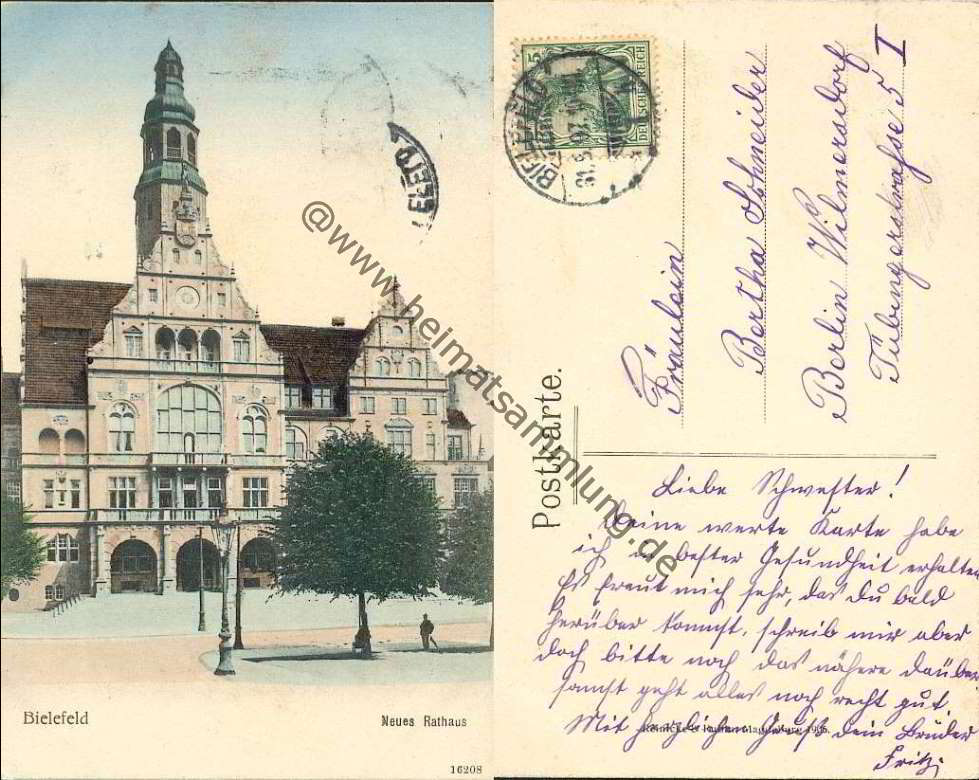 Bielefeld
Neues Rathaus
16208
@www.heimatsammlung.de
Postkarte.
DEUTSCHES REICH
5
BIELEFELD
Fräulein
Bertha Schneider
Berlin Wilmersdorf
Tübingerstraße 5 I
Liebe Schwester!
Deine werte Karte habe
ich in bester Gesundheit erhalten
Es freut mich sehr, das du bald
herüber kommst, schreib mir aber
doch bitte noch das nähere daüber
sonst geht alles noch recht gut.
Mit herzlichem Gruß dein Bruder
Fritz.